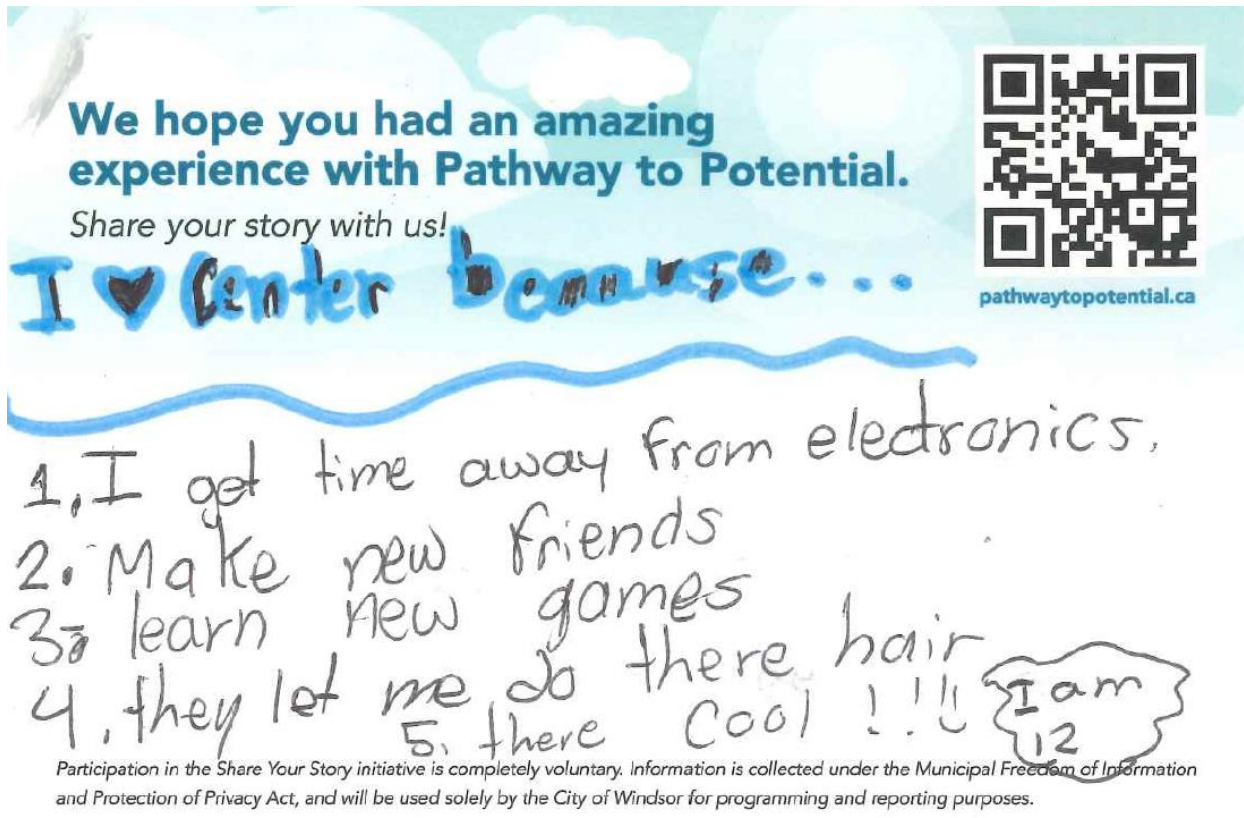 We hope you had an amazing
experience with Pathway to Potential.
Share your story with us!
pathwaytopotential.ca
I ♥ Center becuause....
1. I get time away from electronics.
2. Make new friends
3. learn new games
4. they let me do there hair
5. there cool !!!!
I am
12
Participation in the Share Your Story initiative is completely voluntary. Information is collected under the Municipal Freedom of Information
and Protection of Privacy Act, and will be used solely by the City of Windsor for programming and reporting purposes.